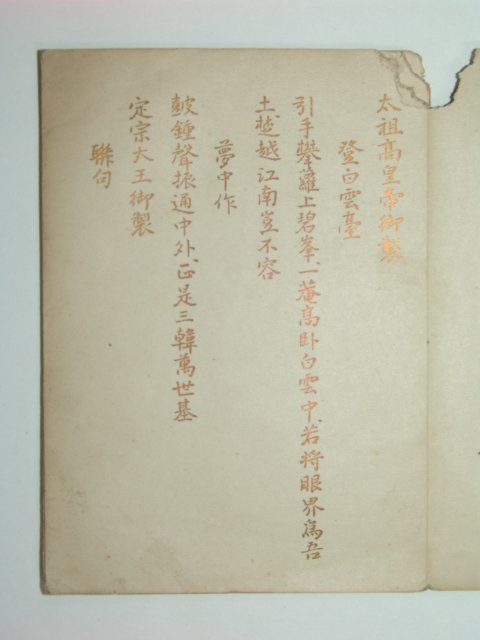 太祖高皇帝御製
登白雲臺
引手攀蘿上碧峯一菴高卧白雲中若将眼界為吾
土越江南豈不容
夢中作
皷鍾聲振通中外正是三韓萬世基
定宗大王御製
聯句